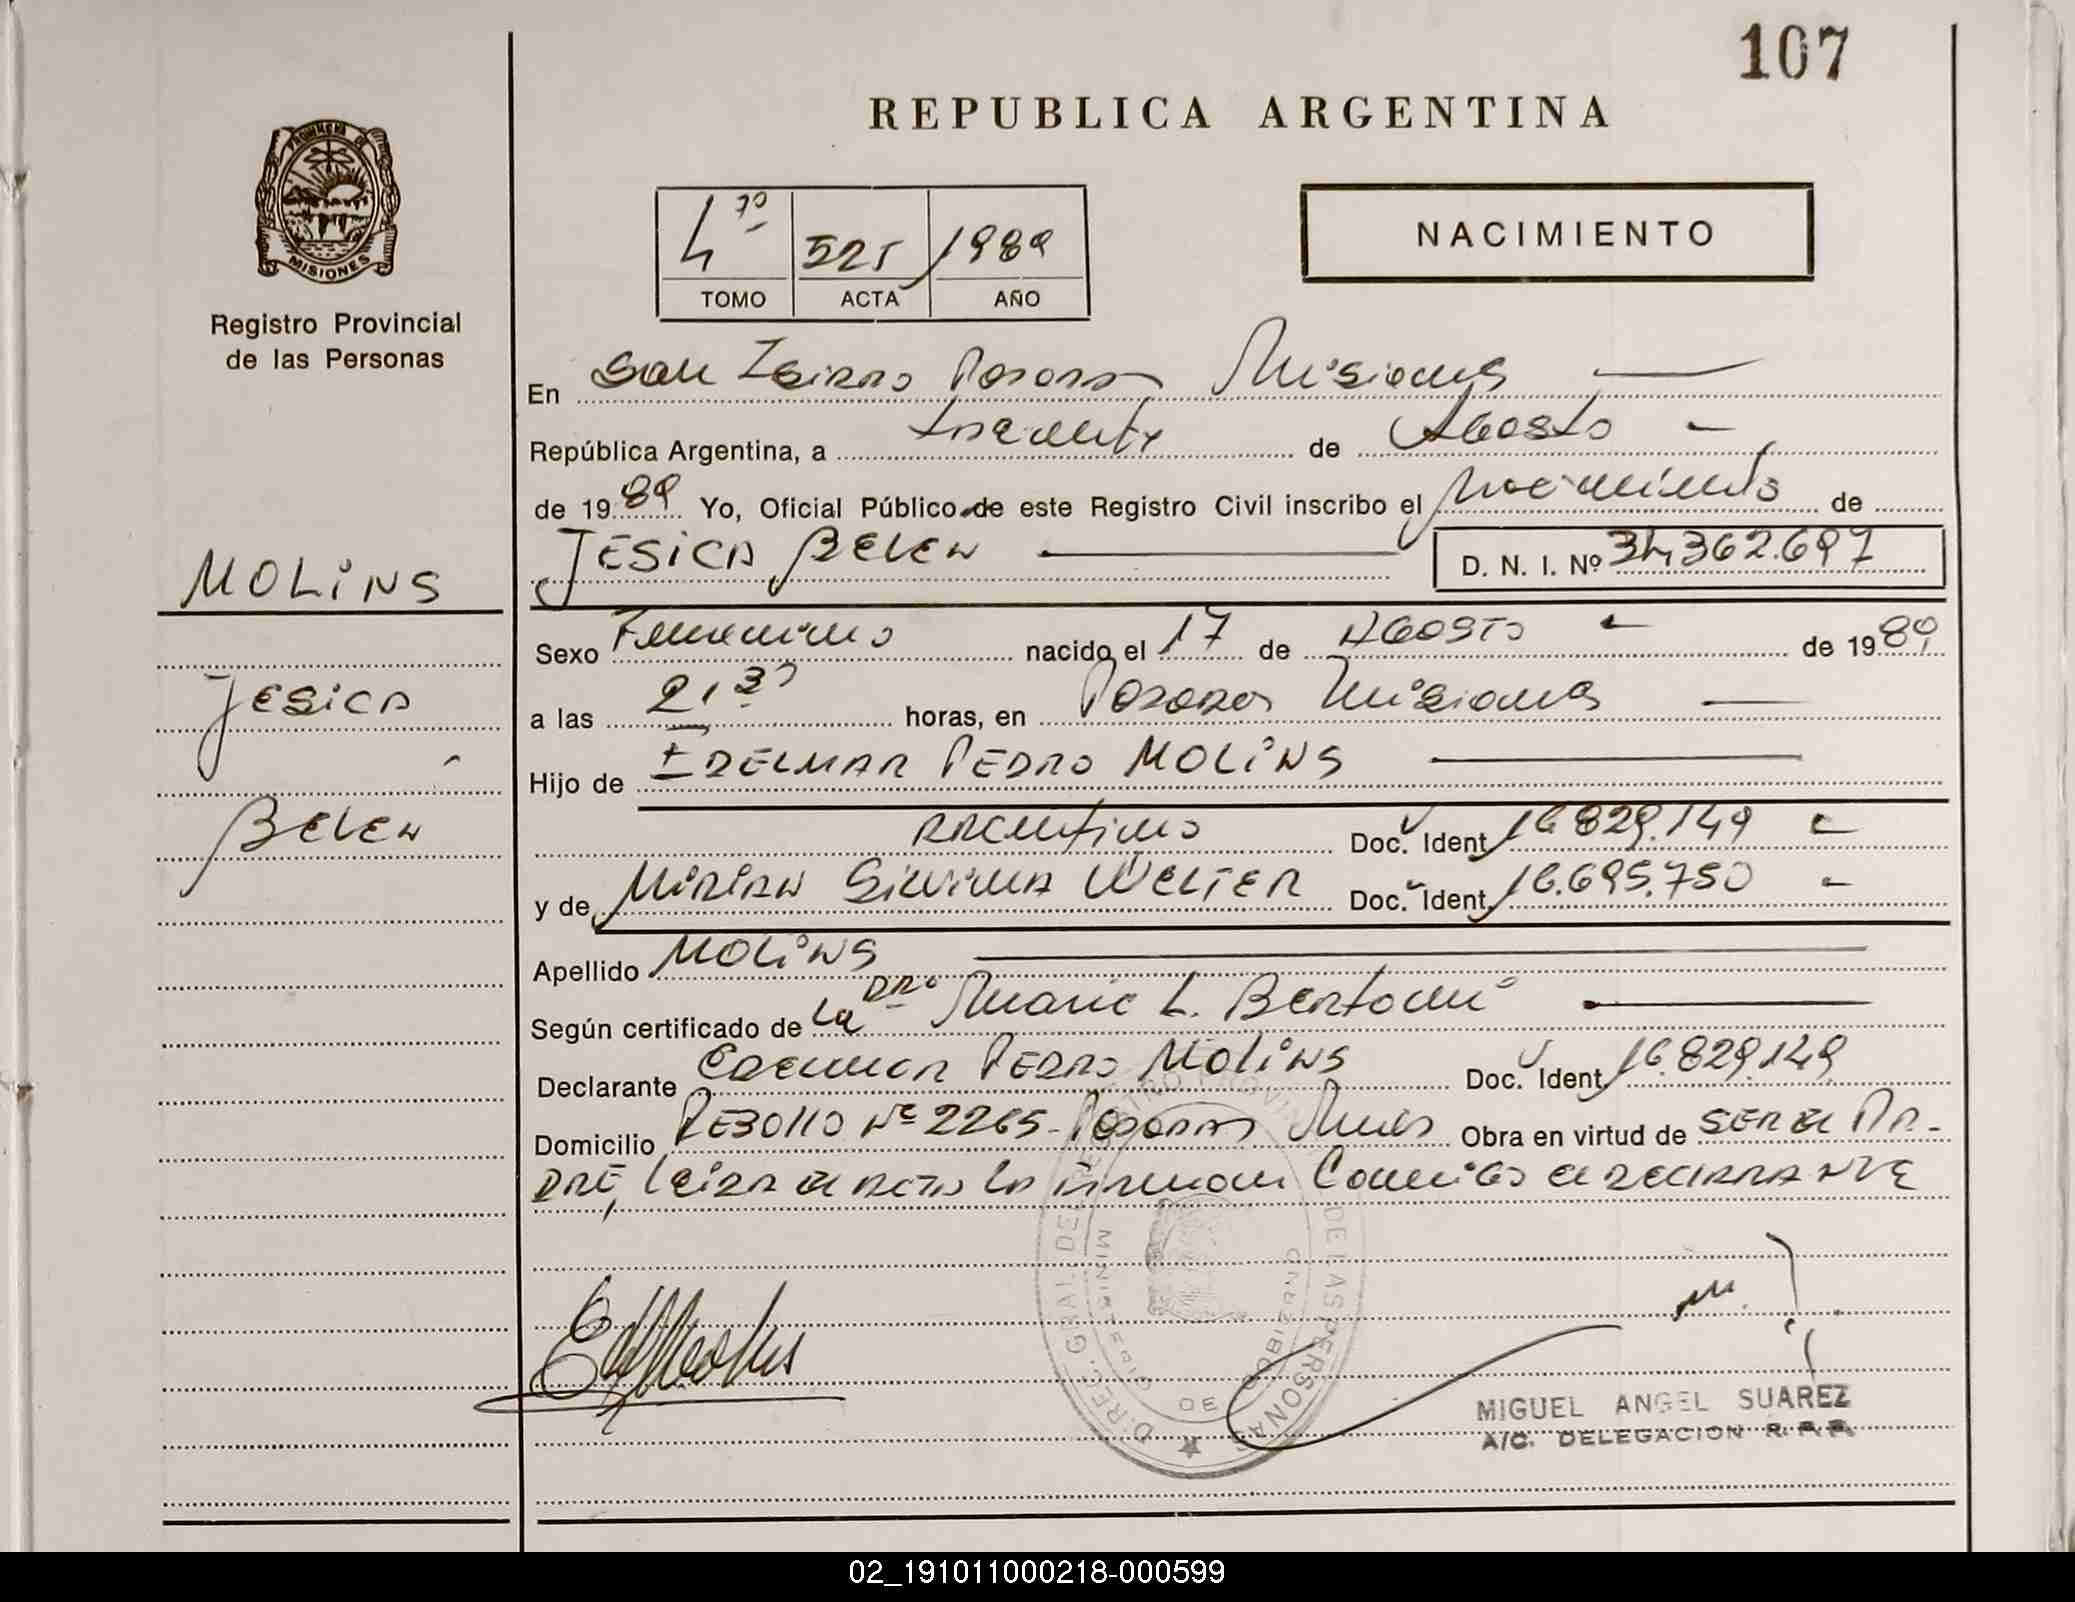 107
REPUBLICA ARGENTINA
PROVINCIA DE
MISIONES
Registro Provincial
de las Personas
4 to 525 1989
TOMO ACTA AÑO
NACIMIENTO
En San Isidro Posadas Misiones
República Argentina, a veinte de Agosto
de 1989 Yo, Oficial Público de este Registro Civil inscribo el nacimiento de
JESICA BELEN D. N. I. Nº 34,362.697
MOLINS
JESICA
BELEN
Sexo Femenino nacido el 17 de AGOSTO de 1989
a las 21,30 horas, en Posadas Misiones
Hijo de EDELMAR PEDRO MOLINS
Argentino Doc. Ident 16.829.149
y de MIRIAN SILVINA WELTER Doc. Ident 16.695.750
Apellido MOLINS
Según certificado de La DRA Maria L.
Declarante Edelmar PEDRO MOLINS Doc. Ident 16.829.149
Domicilio REBOLLO Nº 2265- Posadas Mnes Obra en virtud de SER EL PA-
DRE, Leida el acta la firman Conmigo el DECLARANTE
DIREC. GRAL. DEL REGISTRO PROVINCIAL DE LAS PERSONAS
MINISTERIO DE GOBIERNO
MIGUEL ANGEL SUAREZ
A/C. DELEGACION R. P. P.
02_191011000218-000599